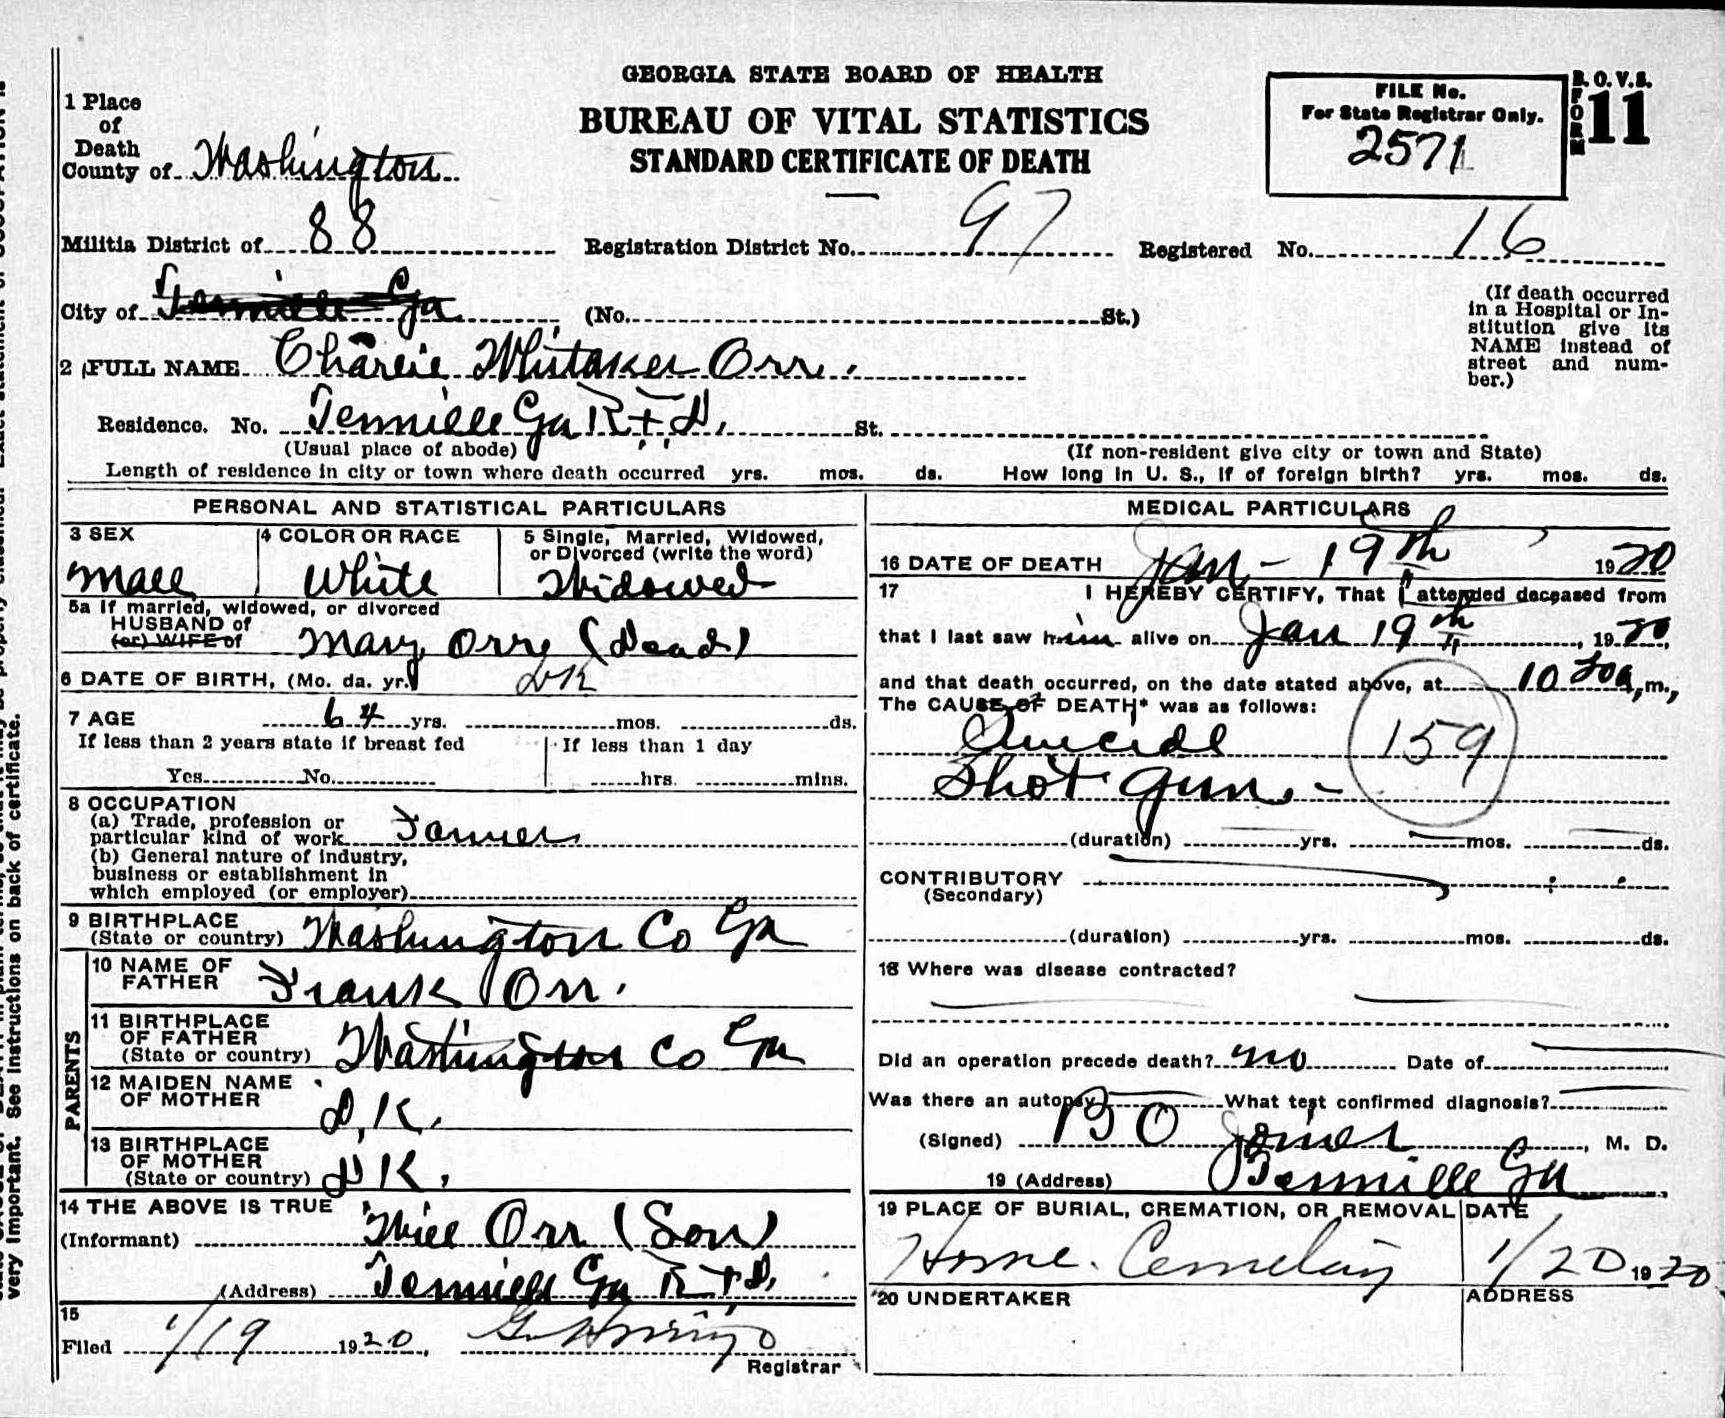 GEORGIA STATE BOARD OF HEALTH
BUREAU OF VITAL STATISTICS
STANDARD CERTIFICATE OF DEATH
FILE No.
For State Registrar Only.
2571
B. O. V. S.
FORM 11
1 Place of Death
County of Washington
Militia District of 88 Registration District No. 97 Registered No. 16
City of Tennille Ga (No. St.)
(If death occurred in a Hospital or Institution give its NAME instead of street and number.)
2 FULL NAME Charlie Whitaker Orr.
Residence. No. Tennille Ga R.F.D. St.
(Usual place of abode) (If non-resident give city or town and State)
Length of residence in city or town where death occurred yrs. mos. ds. How long in U. S., if of foreign birth? yrs. mos. ds.
PERSONAL AND STATISTICAL PARTICULARS
3 SEX
Male
4 COLOR OR RACE
White
5 Single, Married, Widowed, or Divorced (write the word)
Widowed
5a If married, widowed, or divorced
HUSBAND of
(or) WIFE of
Mary Orr (Dead)
6 DATE OF BIRTH, (Mo. da. yr.) DK
7 AGE 64 yrs. mos. ds.
If less than 2 years state if breast fed
Yes No.
If less than 1 day
hrs. mins.
8 OCCUPATION
(a) Trade, profession or
particular kind of work Farmer
(b) General nature of industry,
business or establishment in
which employed (or employer)
9 BIRTHPLACE
(State or country) Washington Co Ga
PARENTS
10 NAME OF FATHER Frank Orr.
11 BIRTHPLACE OF FATHER
(State or country) Washington Co Ga
12 MAIDEN NAME OF MOTHER D.K.
13 BIRTHPLACE OF MOTHER
(State or country) DK.
14 THE ABOVE IS TRUE
(Informant) Will Orr (Son)
(Address) Tennille Ga R.F.D.
15
Filed 1/19 1920,
Registrar
MEDICAL PARTICULARS
16 DATE OF DEATH Jan - 19th 1920
17 I HEREBY CERTIFY, That I attended deceased from
that I last saw him alive on Jan 19th, 1920,
and that death occurred, on the date stated above, at 10 m.,
The CAUSE OF DEATH* was as follows:
Suicide
Shot gun. -
159
(duration) yrs. mos. ds.
CONTRIBUTORY
(Secondary)
(duration) yrs. mos. ds.
18 Where was disease contracted?
Did an operation precede death? no Date of
Was there an autopsy What test confirmed diagnosis?
(Signed) B O Joiner, M. D.
19 (Address) Tennille Ga
19 PLACE OF BURIAL, CREMATION, OR REMOVAL
Home. Cemetery
DATE
1/20 1920
20 UNDERTAKER
ADDRESS
very important. See instructions on back of certificate.